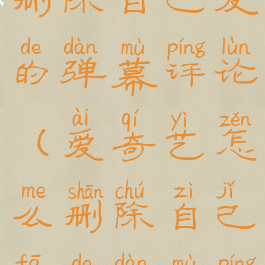 删除自己发
de dàn mù píng lùn
的弹幕评论
ài qí yì zěn
（爱奇艺怎
me shān chú zì jǐ
么删除自己
fā de dàn mù píng